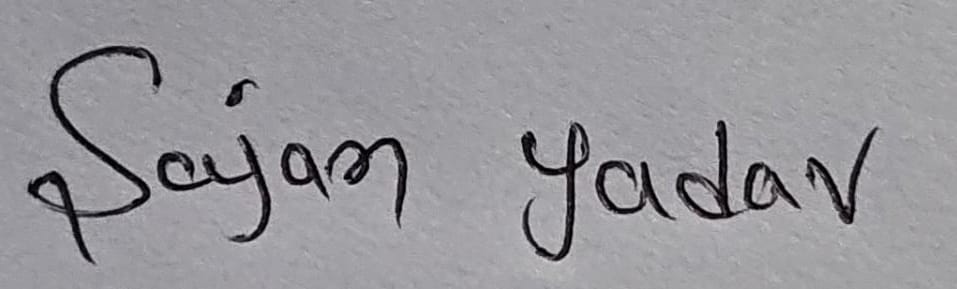 Sajan Yadav